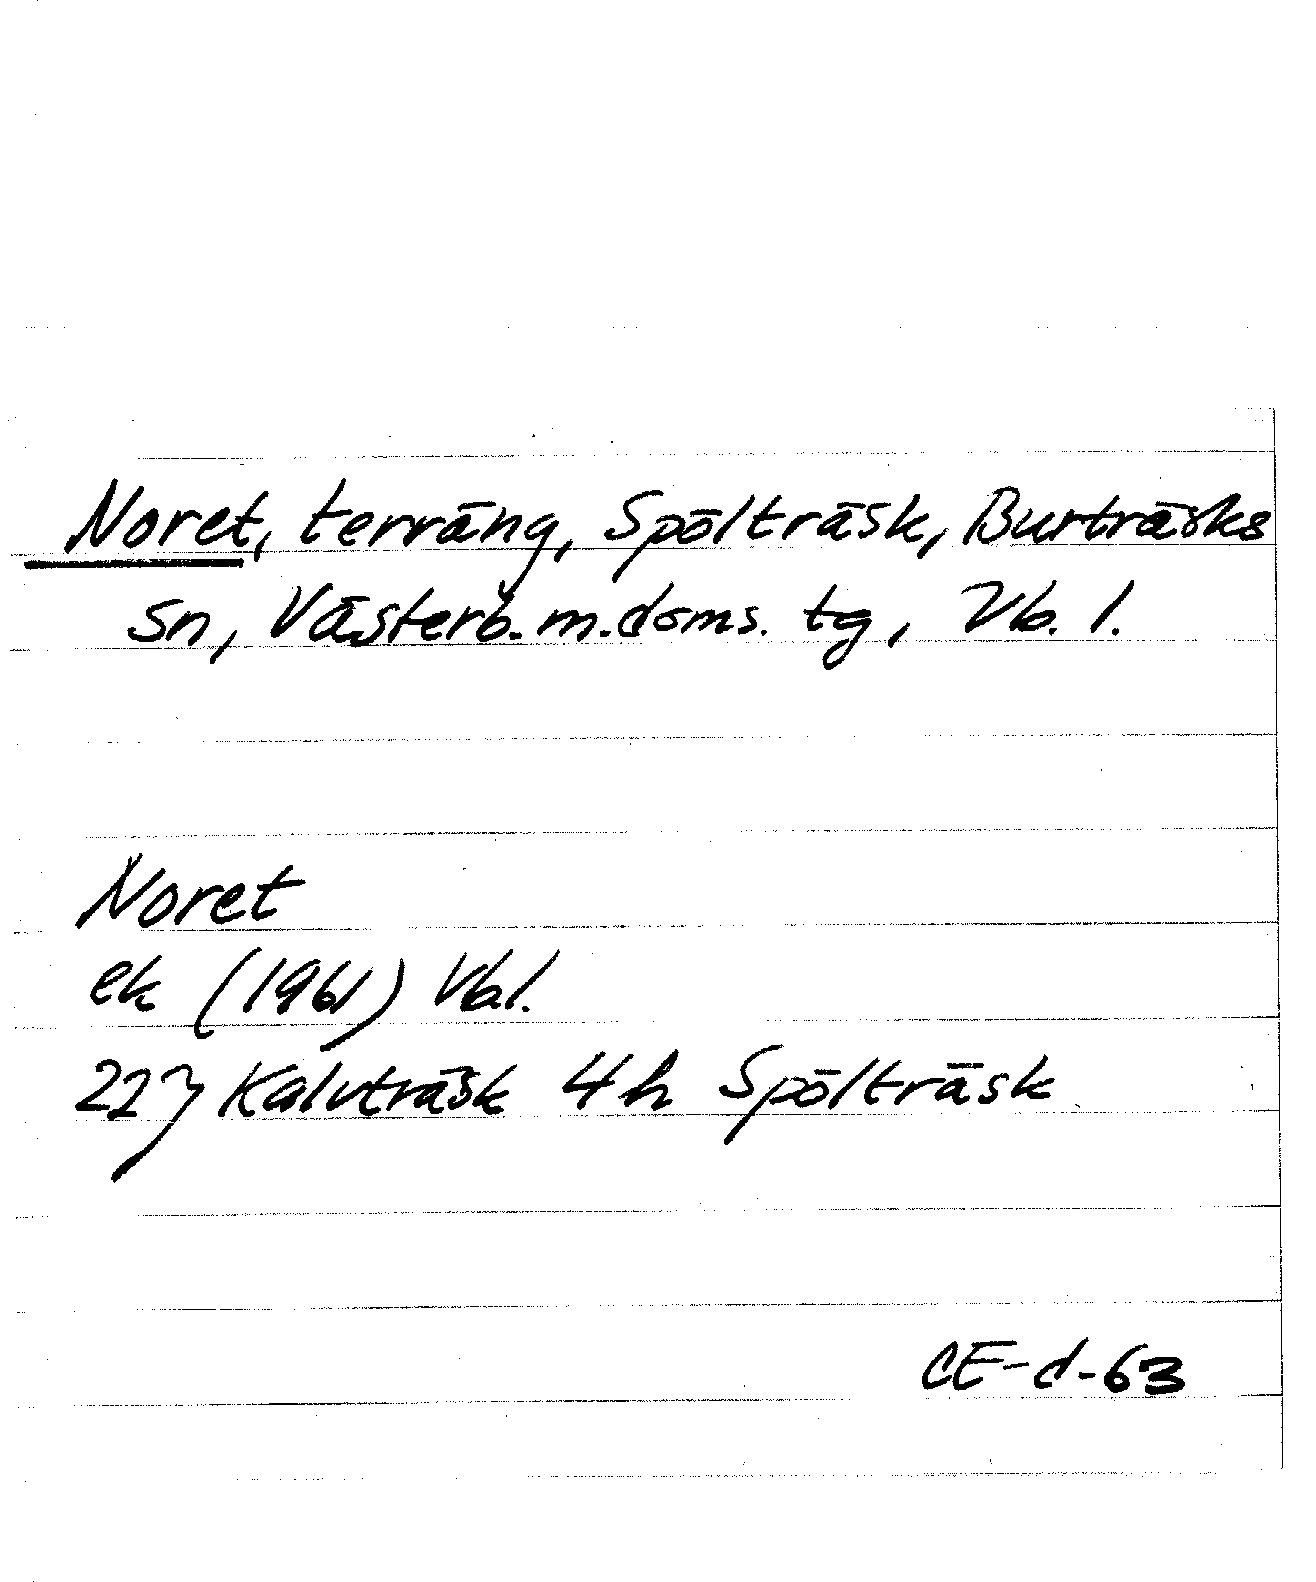 Noret, terräng, Spölträsk, Burträsks
sn, Västerb. m. doms. tg, Vb. l.
Noret
ek (1961) Vbl.
22J Kalvträsk 4h Spölträsk
CE-d-63